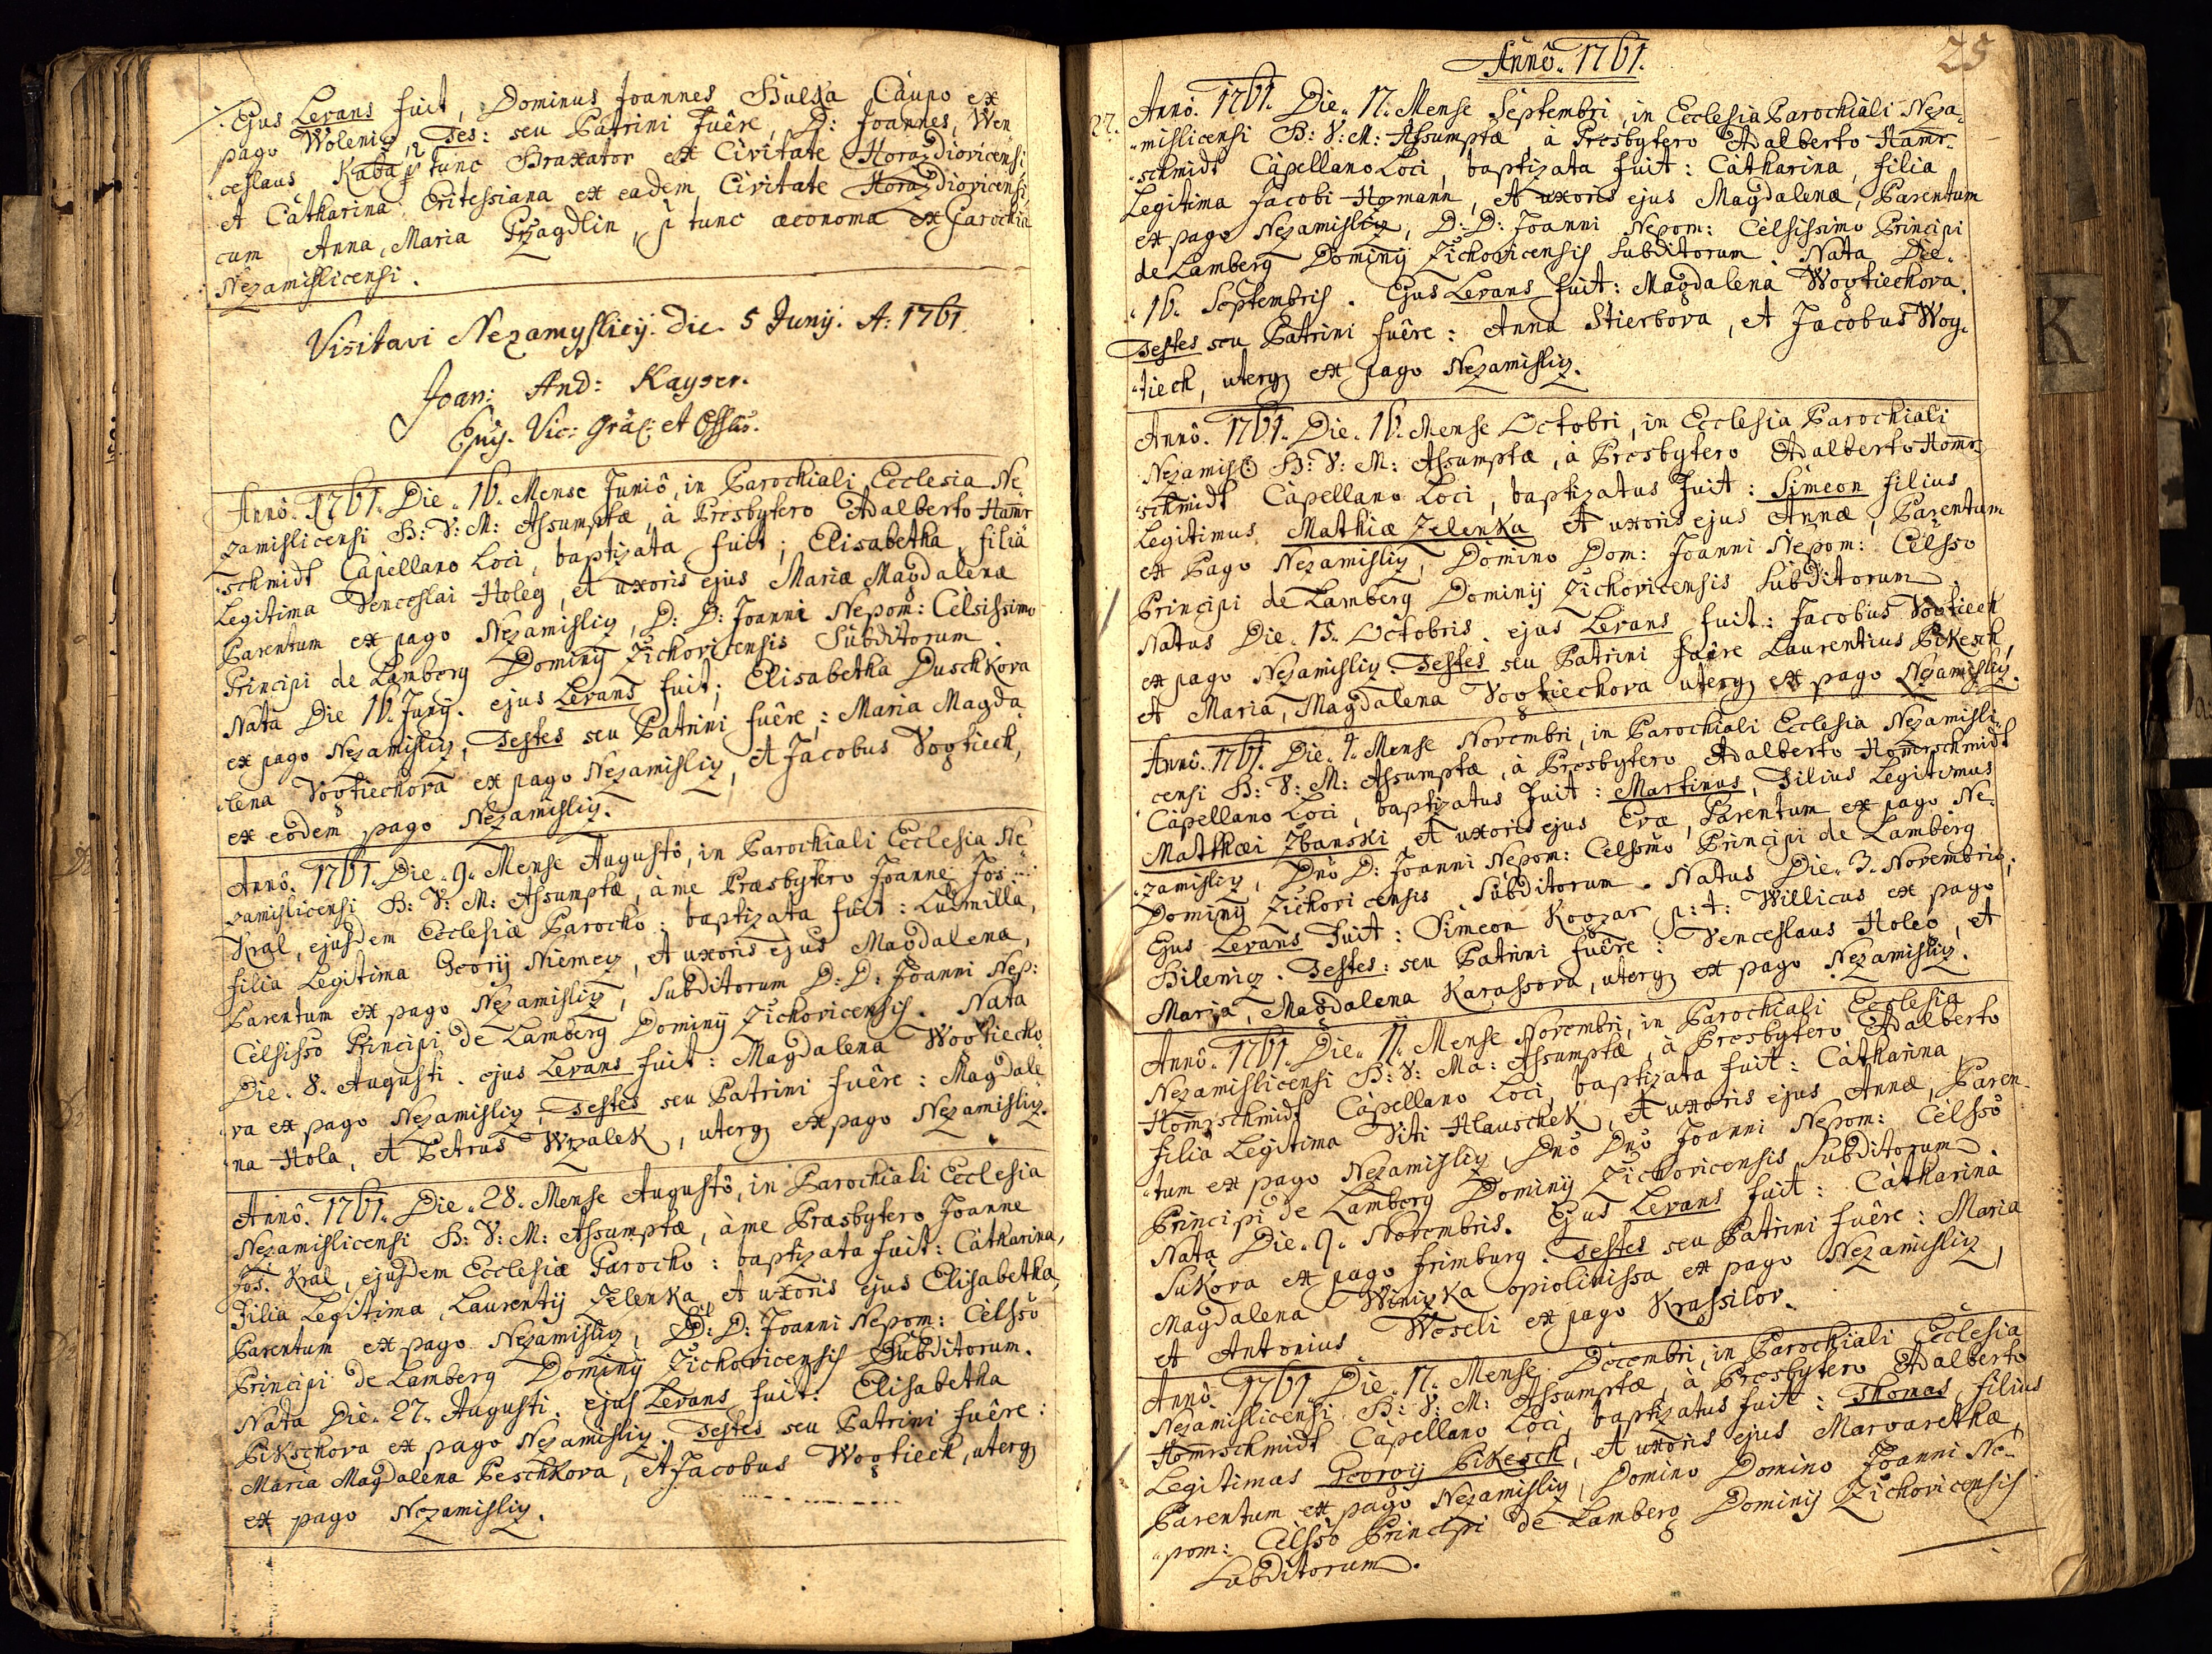 Ejus Levans fuit, Dominus Joannes Caupo ex
pago Wolenicz, Tes: seu Patrini fuêre, D: Joannes, Wen
ceslaus Kaba p tunc Braxator ex Civitate Horazdiovicensi
et Catharina Critessiana ex eadem Civitate Horazdiovicensi
cum Anna, Maria p tunc œconoma ex Parochia
Nezamislicensi.
Visitavi Nezamyslicij. die 5 Junij. A: 1761.
Joan: And: Kayser.
Vic: et
Annô. 1761. Die. 16. Mense Juniô, in Parochiali Ecclesia Ne
zamislicensi B: V: M: Assumptæ, à Presbytero Adalberto Hamr
schmidt Capellano Loci, baptizata fuit; Elisabetha, filia
Legitima Venceslai Holeg, et uxoris ejus Mariæ Magdalenæ
Parentum ex pago Nezamisliz, D: D: Joanni Nepom: Celsissimo
Principi de Lamberg Dominij Zichovicensis Subditorum.
Nata Die 16. Junij. ejus Levans fuit; Elisabetha Duschkova
ex pago Nezamisliz, Testes seu Patrini fuêre; Maria Magda
lena Vogtiechova ex pago Nezamisliz, et Jacobus Vogtiech,
ex eodem pago Nezamisliz.
Annô. 1761. Die. 9. Mense Augustô, in Parochiali Ecclesia Ne
zamislicensi B: V: M: Assumptæ, à me Præsbytero Joanne Jos:
Kral, ejusdem Ecclesiæ Parocho: baptizata fuit: Ludmilla,
filia Legitima Georij Niemecz, et uxoris ejus Magdalena,
Parentum ex pago Nezamisliz, Subditorum D: D: Joanni Nep:
Celsisso Principi de Lamberg Dominij Zichovicensis. Nata
Die. 8. Augusti. ejus Levans fuit: Magdalena Wogtiecho
va ex pago Nezamisliz, Testes seu Patrini fuêre: Magdale
na Hola, et Petrus Wrzalek, uterq ex pago Nezamisliz.
Annô. 1761. Die. 28. Mense Augustô, in Parochiali Ecclesia
Nezamislicensi B: V: M: Assumptæ, à me Præsbytero Joanne
Jos. Kral, ejusdem Ecclesiæ Parocho: baptizata fuit: Catharina,
Filia Legitima, Laurentij Zelenka et uxoris ejus Elisabetha,
Parentum ex pago Nezamisliz, D: D: Joanni Nepom: Celsso
Principi de Lamberg Dominij Zichovicensis Subditorum.
Nata Die. 27. Augusti. ejus Levans fuit: Elisabetha
Pikschova ex pago Nezamisliz. Testes seu Patrini fuêre:
Maria Magdalena Peschkova, et Jacobus Wogtiech, uterq
ex pago Nezamisliz.
Annô. 1761.
25
27. Annô. 1761. Die. 17. Mense Septembri, in Ecclesia Parochiali Neza
mislicensi B: V: M: Assumptæ, à Presbytero Adalberto Hamr
schmidt Capellano Loci, baptizata fuit: Catharina, filia
Legitima Jacobi Homann, et uxoris ejus Magdalenæ, Parentum
ex pago Nezamisliz, D: D: Joanni Nepom: Celsissimo Principi
de Lamberg Dominij Zichovicensis Subditorum. Nata Die.
16. Septembris. Ejus Levans fuit: Magdalena Wogtiechova.
Testes seu Patrini fuêre: Anna Stierbova, et Jacobus Wog
tiech, uterq ex pago Nezamisliz.
Annô. 1761. Die. 16. Mense Octobri, in Ecclesia Parochiali
Nezamisl B: V: M: Assumptæ, à Presbytero Adalberto Homr
schmidt Capellano Loci, baptizatus fuit: Simeon filius
Legitimus, Mathiæ Zelenka et uxoris ejus Annæ, Parentum
ex Pago Nezamisliz, Domino Dom: Joanni Nepom: Celsso
Principi de Lamberg Dominij Zichovicensis Subditorum.
Natus Die. 15. Octobris. ejus Levans fuit: Jacobus Vogtiech
ex pago Nezamisliz. Testes seu Patrini fuêre Laurentius Pikesch,
et Maria, Magdalena Vogtiechova uterq ex pago Nezamisliz.
Annô. 1761. Die. 4. Mense Novembri, in Parochiali Ecclesia Nezamisli
censi B: V: M: Assumptæ, à Presbytero Adalberto Homrschmidt
Capellano Loci, baptizatus fuit: Martinus, Filius Legitimus
Matthæi Zbanski et uxoris ejus Evæ, Parentum ex pago Ne
zamisliz, Dnô D: Joanni Nepom: Celssmo Principi de Lamberg
Dominij Zichovicensis Subditorum. Natus Die. 3. Novembris.
Ejus Levans Fuit: Simeon Kogzar p: t: Willicus ex pago
Bilenicz. Testes: seu Patrini fuêre: Venceslaus Holeg, et
Maria, Magdalena Karassova, uterq ex pago Nezamisliz.
Annô. 1761. Die. 11. Mense Novembri, in Parochiali Ecclesia
Nezamislicensi B: V: Ma: Assumptæ, à Presbytero Adalberto
Homrschmidt Capellano Loci, baptizata fuit: Catharina,
filia Legitima Viti Hlauschek, et uxoris ejus Annæ, Paren
tum ex pago Nezamisliz, Dnô Dnô Joanni Nepom: Celssô
Principi de Lamberg Dominij Zichovicensis Subditorum.
Nata Die. 9. Novembris. Ejus Levans fuit: Catharina
Sukova ex pago frimburg. Testes seu Patrini fuêre: Maria
Magdalena Winizka opiolinissa ex pago Nezamisliz,
et Antonius Weseli ex pago Krassilov.
Annô. 1761. Die. 17. Mense Decembri, in Parochiali Ecclesia
Nezamislicensi B: V: M: Assumptæ, à Presbytero Adalberto
Homrschmidt Capellano Loci, baptizatus fuit: Thomas, filius
Legitimus Georgij Pikesch, et uxoris ejus Margarethæ,
Parentum ex pago Nezamisliz, Domino Domino Joanni Ne
pom: Celssô Principi de Lamberg Dominij Zichovicensis
Subditorum.
K